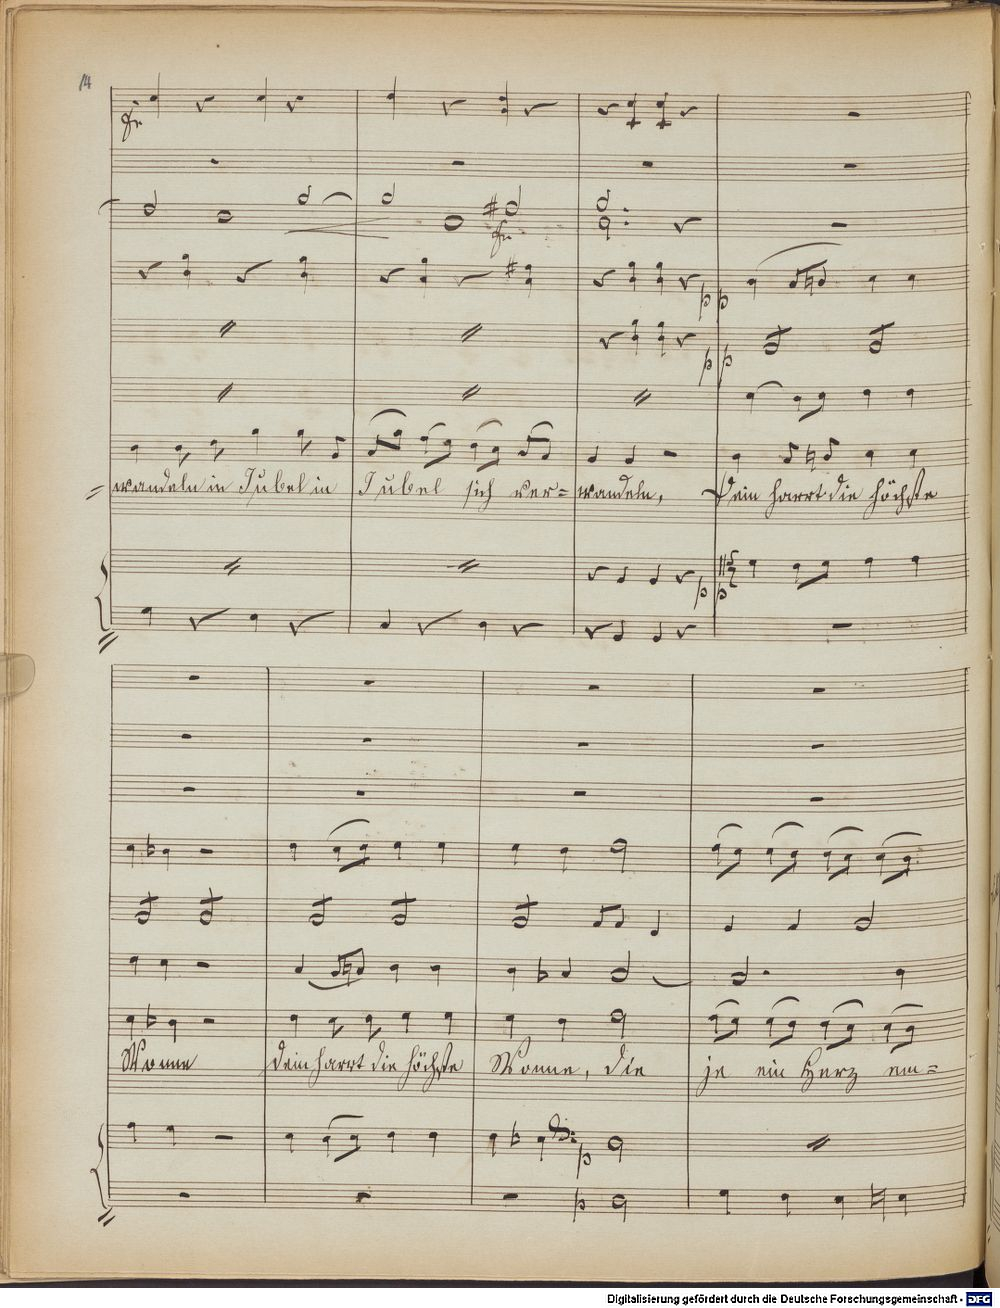 14
fr
fr
p p
p p
= wandeln in Jubel in Jubel sich ver= wandeln, Dein harrt die höchste
p p
Wonne dein harrt die höchste Wonne, die je ein Herz em=
p
p
Digitalisierung gefördert durch die Deutsche Forschungsgemeinschaft - DFG